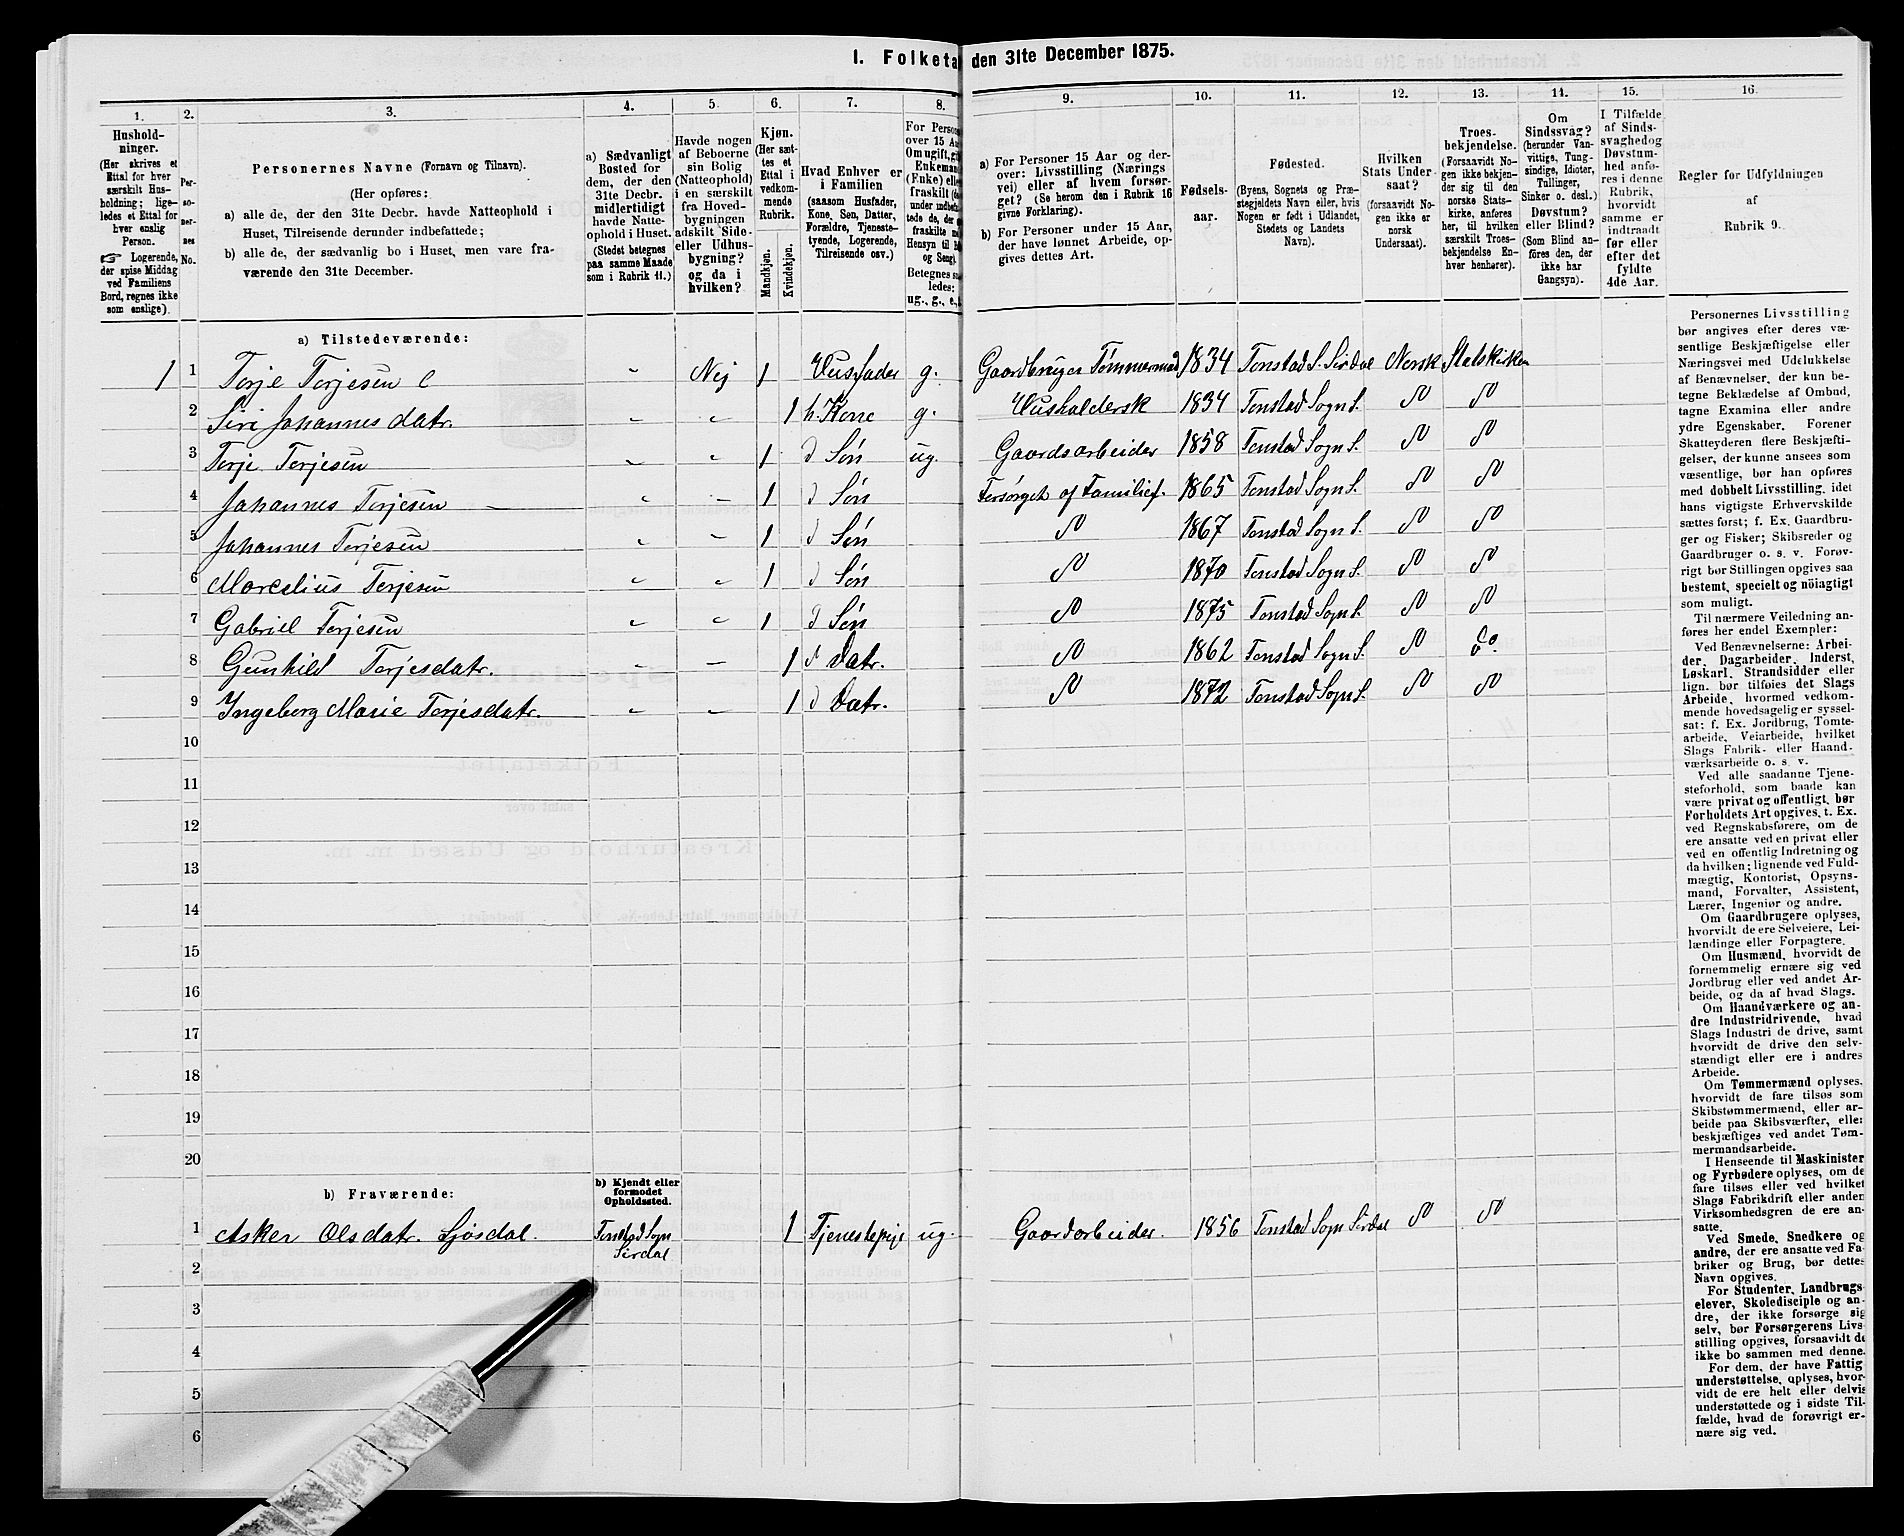 I. Folketa den 31te December 1875.
1. 2. 3. 4. 5. 6. 7. 8. 9. 10. 11. 12. 13. 14. 15. 16.
Hushold-
ninger.
(Her skrives et
Ettal for hver
særskilt Hus-
holdning; lige-
ledes et Ettal for
hver enslig
Person.
☞ Logerende,
der spise Middag
ved Familiens
Bord, regnes ikke
som enslige).
Per-
so-
ner-
nes
No.
Personernes Navne (Fornavn og Tilnavn).
(Her opføres:
a) alle de, der den 31te Decbr. havde Natteophold i
Huset, Tilreisende derunder indbefattede;
b) alle de, der sædvanlig bo i Huset, men vare fra-
værende den 31te December.
a) Sædvanligt
Bosted for
dem, der den
31te Decbr.
midlertidigt
havde Natte-
ophold i Huset.
(Stedet betegnes
paa samme Maade
som i Rubrik 11.)
Havde nogen
af Beboerne
sin Bolig
(Natteophold)
i en særskilt
fra Hoved-
bygningen
adskilt Side-
eller Udhus-
bygning?
og da i
hvilken?
Kjøn.
(Her sæt-
tes et
Ettal i
vedkom-
mende
Rubrik.
Mandkjøn.
Kvindekjøn.
Hvad Enhver er
i Familien
(saasom Husfader,
Kone, Søn, Datter,
Forældre, Tjeneste-
tyende, Logerende,
Tilreisende osv.)
For Person
over 15 Aa
Om ugift, gif
Enkemand
(Enke) elle
fraskilt (de
under indbefa
tede de, der
fraskilte m
Hensyn til B
og Seng).
Betegnes s
ledes:
ug., g., e.,
a) For Personer 15 Aar og der-
over: Livsstilling (Nærings
vei) eller af hvem forsør-
get? (Se herom den i Rubrik 16
givne Forklaring).
b) For Personer under 15 Aar,
der have lønnet Arbeide, op-
gives dettes Art.
Fødsels-
aar.
Fødested.
(Byens, Sognets og Præ-
stegjeldets Navn eller, hvis
Nogen er født i Udlandet,
Stedets og Landets
Navn).
Hvilken
Stats Under
saat?
(forsaavidt No-
gen ikke er
norsk
Undersaat).
Troes-
bekjendelse.
(Forsaavidt No-
gen ikke bekjen-
der sig til den
norske Stats-
kirke, anføres
her, til hvilken
særskilt Troes-
bekjendelse En-
hver henhører).
Om
Sindssvag?
(herunder Van-
vittige, Tung-
sindige, Idioter,
Tullinger,
Sinker o. desl.)
Døvstum?
eller Blind?
(Som Blind an-
føres den, der
ikke har
Gangsyn).
I Tilfælde
af Sinds-
svaghed og
Døvstum-
hed anfø-
res i denne
Rubrik,
hvorvidt
samme er
indtraadt
før eller
efter det
fyldte
4de Aar.
Regler for Udfyldningen
af
Rubrik 9.
a) Tilstedeværende:
1 1 Terje Terjesen „ Nej 1 Husfader g. Gaardbruger Tømmermand 1834 Tonstad S. Sirdal Norsk Statskirken
2 Siri Johannesdatr. „ „ 1 h. Kone g. Husholdersk 1834 Tonstad Sogn S. do do
3 Terje Terjesen „ „ 1 d Søn ug. Gaardsarbeider 1858 Tonstad Sogn S. do do
4 Johannes Terjesen „ – 1 d Søn Forsørget af Familief. 1865 Tonstad Sogn S. do do
5 Johannes Terjesen „ – 1 d Søn do 1867 Tonstad Sogn S. do do
6 Marcelius Terjesen „ „ 1 d Søn do 1870 Tonstad Sogn S. do do
7 Gabriel Terjesen „ „ 1 d Søn do 1875 Tonstad Sogn S. do do
8 Gunhild Terjesdatr. „ – 1 d Datr. do 1862 Tonstad Sogn S. do do.
9 Ingeborg Marie Terjesdatr. „ – 1 d Datr. do 1872 Tonstad Sogn S. do do
10
11
12
13
14
15
16
17
18
19
20
b) Fraværende:
b) Kjendt eller
formodet
Opholdssted.
1 Asker Olsdatr. Sjøsdal. Tonstad Sogn Sirdal 1 Tjenestepige ug. Gaardarbeider. 1856 Tonstad Sogn Sirdal do do
2
3
4
5
6
Personernes Livsstilling
bør angives efter deres væ-
sentlige Beskjæftigelse eller
Næringsvei med Udelukkelse
af Benævnelser, der kun be-
tegne Beklædelse af Ombud,
tagne Examina eller andre
ydre Egenskaber. Forener
Skatteyderen flere Beskjæfti-
gelser, der kunne ansees som
væsentlige, bør han opføres
med dobbelt Livsstilling, idet
hans vigtigste Erhvervskilde
sættes først; f. Ex. Gaardbru-
ger og Fisker; Skibsreder og
Gaardbruger o. s. v. Forøv-
rigt bør Stillingen opgives saa
bestemt, specielt og nöiagtigt
som muligt.
Til nærmere Veiledning an-
føres her endel Exempler:
Ved Benævnelserne: Arbei-
der, Dagarbeider, Inderst,
Løskarl, Strandsidder eller
lign. bør tilføies det Slags
Arbeide, hvormed vedkom-
mende hovedsagelig er syssel-
sat; f. Ex. Jordbrug, Tomte-
arbeide, Veiarbeide, hvilket
Slags Fabrik- eller Haand-
værksarbeide o. s. v.
Ved alle saadanne Tjene-
steforhold, som baade kan
være privat og offentligt, bør
Forholdets Art opgives, t. Ex.
ved Regnskabsførere, om de
ere ansatte ved en privat eller
ved en offentlig Indretning og
da hvilken; lignende ved Fuld-
mægtig, Kontorist, Opsyns-
mand, Forvalter, Assistent,
Lærer, Ingeniør og andre.
Om Gaardbrugere oplyses,
hvorvidt de ere Selveiere, Lei-
lændinge eller Forpagtere.
Om Husmænd, hvorvidt de
fornemmelig ernære sig ved
Jordbrug eller ved andet Ar-
beide, og da af hvad Slags.
Om Haandværkere og an-
dre Industridrivende, hvad
Slags Industri de drive, samt
hvorvidt de drive den selv-
stændigt eller ere i andres
Arbeide.
Om Tømmermænd oplyses,
hvorvidt de fare tilsøs som
Skibstømmermænd, eller ar-
beide paa Skibsværfter, eller
beskjæftiges ved andet Tøm-
mermandsarbeide.
I Henseende til Maskinister
og Fyrbødere oplyses, om de
fare tilsøs eller ved hvilket
Slags Fabrikdrift eller anden
Virksomhedsgren de ere an-
satte.
Ved Smede, Snedkere og
andre, der ere ansatte ved Fa-
briker og Brug, bør dettes
Navn opgives.
For Studenter, Landbrugs-
elever, Skoledisciple og an-
dre, der ikke forsørge sig
selv, bør Forsørgerens Livs-
stilling opgives, forsaavidt de
ikke bo sammen med denne.
For dem, der have Fattig-
understøttelse, oplyses, hvor-
vidt de ere helt eller delvis
understøttede og i sidste Til-
fælde, hvad de forøvrigt er-
nære sig ved.